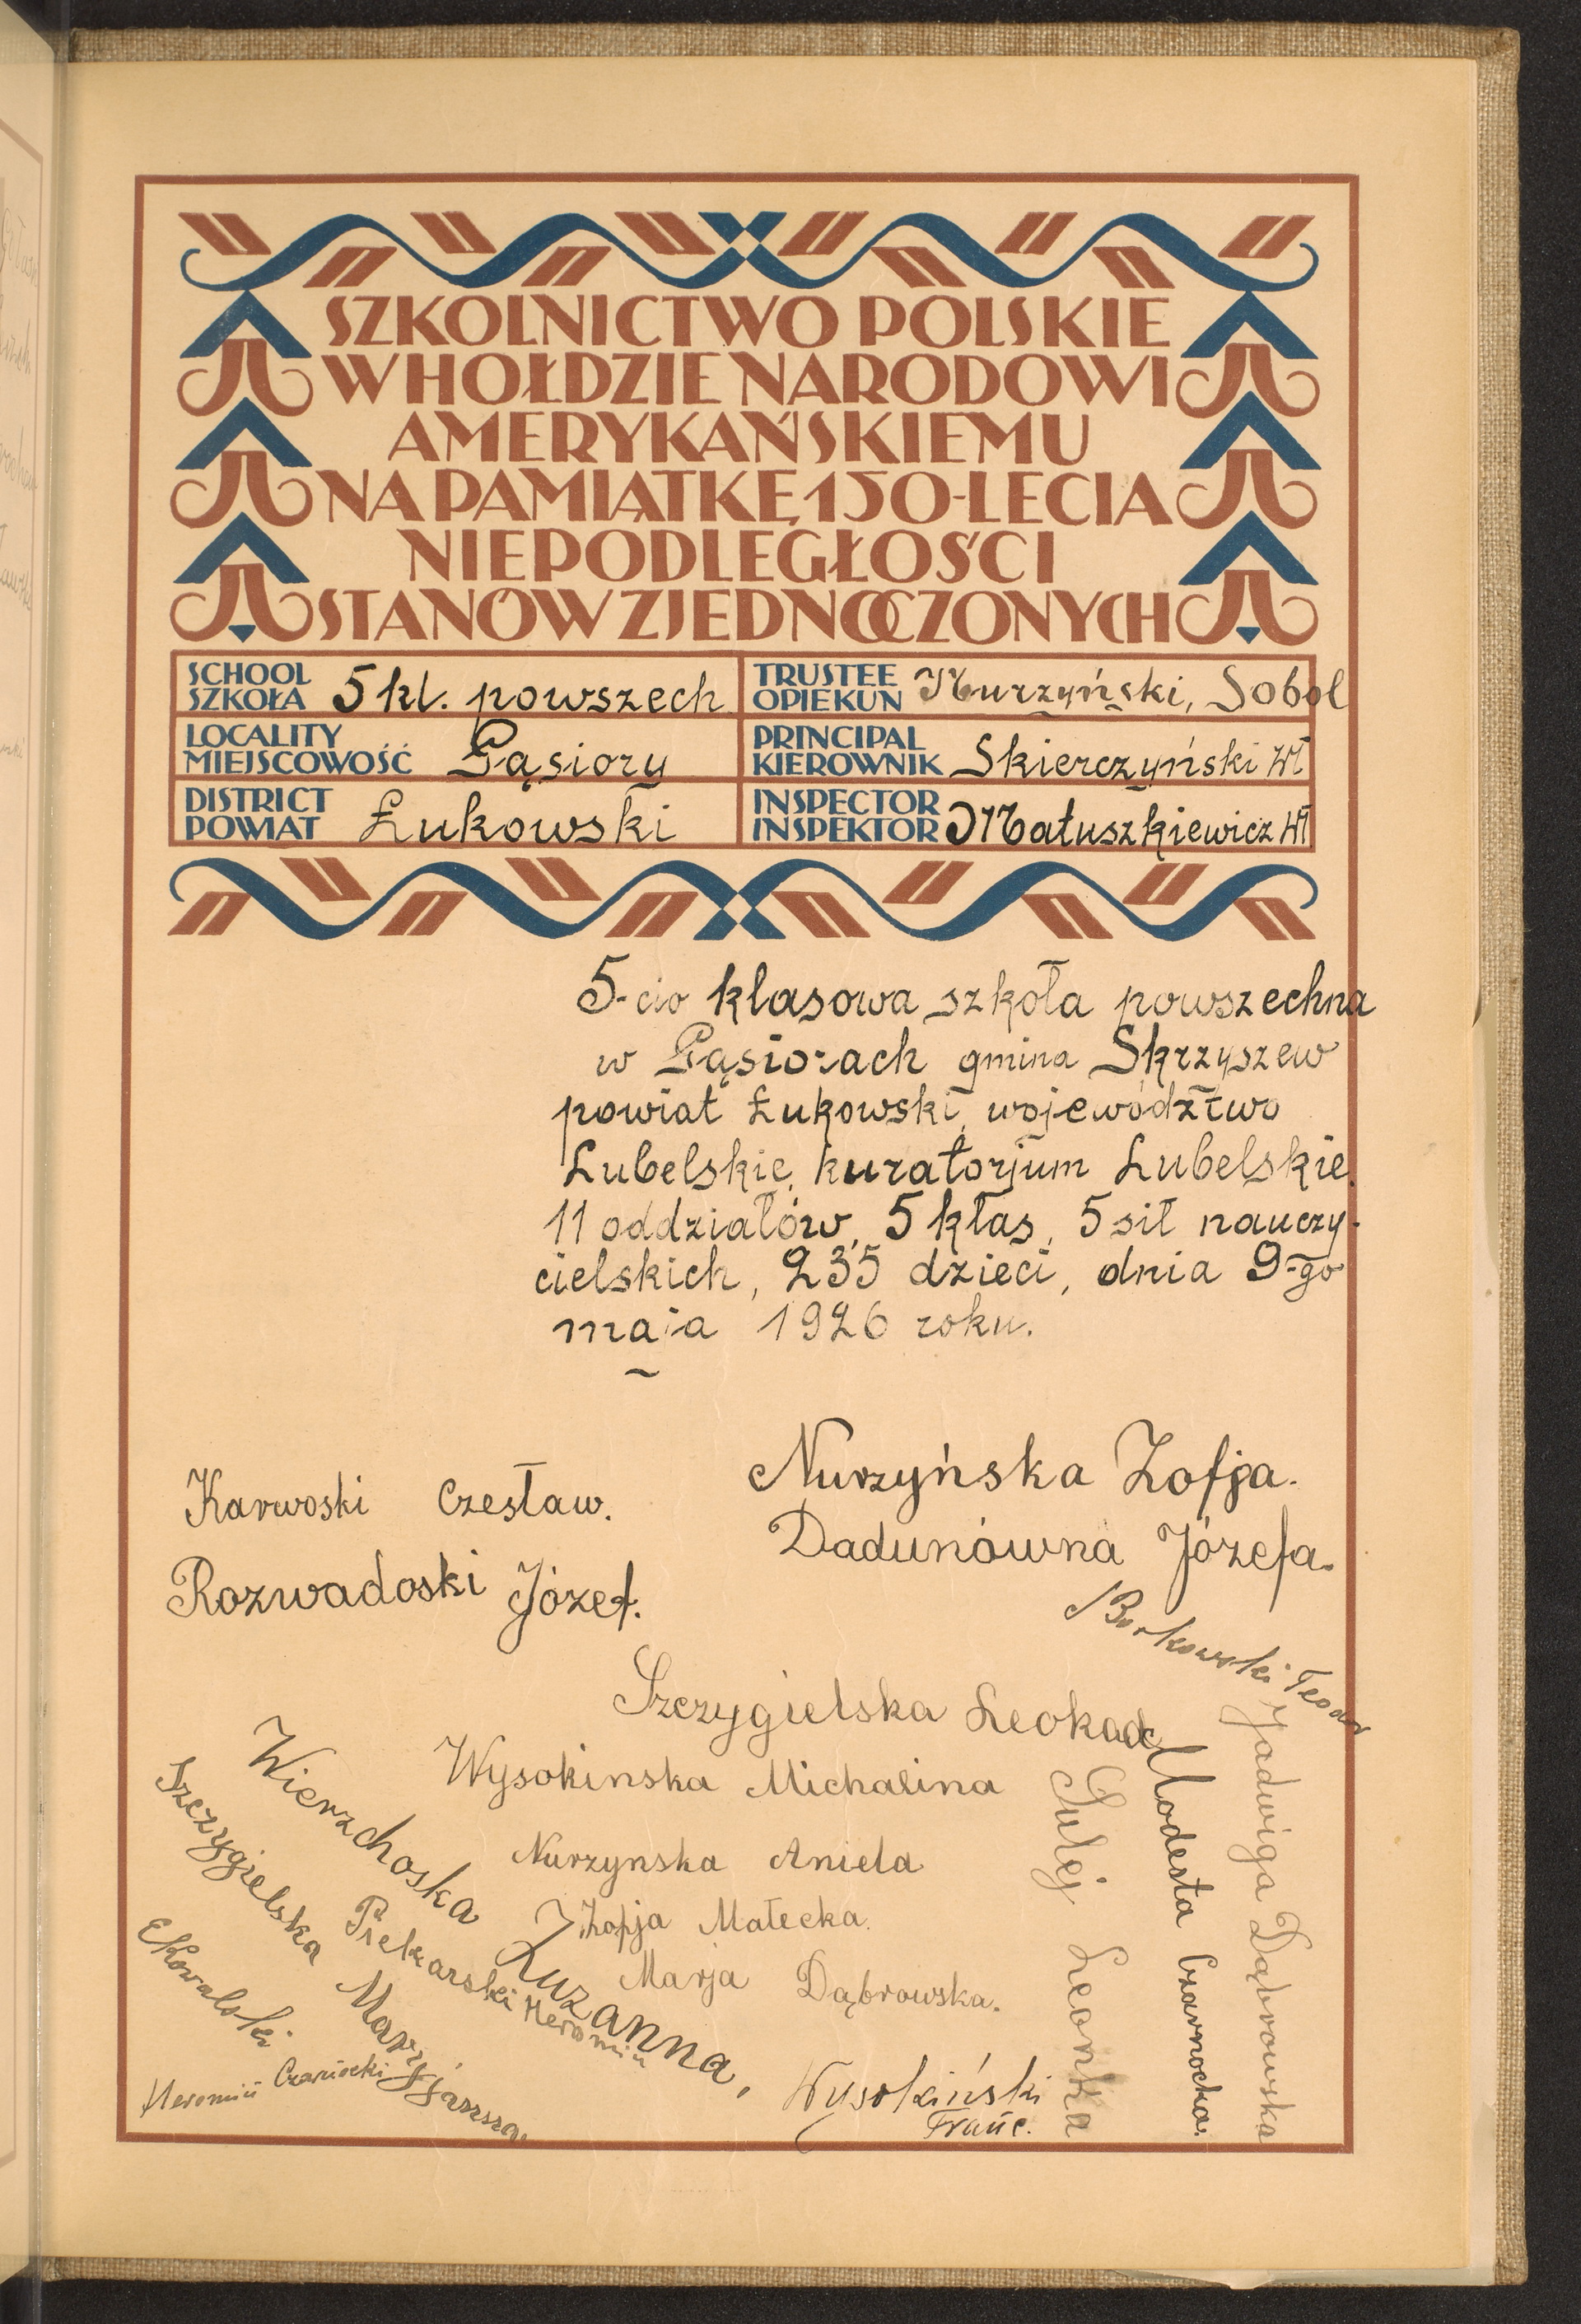 SZKOLNICTWO POLSKIE
W HOŁDZIE NARODOWI
AMERYKAŃSKIEMU
NA PAMIĄTKĘ 150-LECIA
NIEPODLEGŁOŚCI
STANÓW ZJEDNOCZONYCH
SCHOOL
SZKOŁA 5 kl. powszech
TRUSTEE
OPIEKUN Nurzyński, Sobol
LOCALITY
MIEJSCOWOŚĆ Gąsiory
PRINCIPAL
KIEROWNIK Skierczyński Wł
DISTRICT
POWIAT Łukowski
INSPECTOR
INSPEKTOR Matuszkiewicz Wł
5-cio klasowa szkoła powszechna
w Gąsiorach gmina Skrzyszew
powiat Łukowski, województwo
Lubelskie, kuratorjum Lubelskie.
11 oddziałów, 5 kłas, 5 sił nauczy-
cielskich, 235 dzieci, dnia 9-go
maja 1926 roku.
Nurzyńska Zofja.
Karwoski Czesław.
Dadunówna Józefa.
Rozwadoski Józef.
Borkowski Teodor
Szczygielska Leokad
Wysokinska Michalina
Nurzynska Aniela
Zofja Małecka.
Marja Dąbrowska.
Wierzchoska Zuzanna,
Szczygielska Marjanna.
Piekarski Heronim
EKowalski
Heronim Czarnocki
Wysokiński
Franc.
Sulej Leonka
Modesta Czarnocka.
Jadwiga Dąbrowska